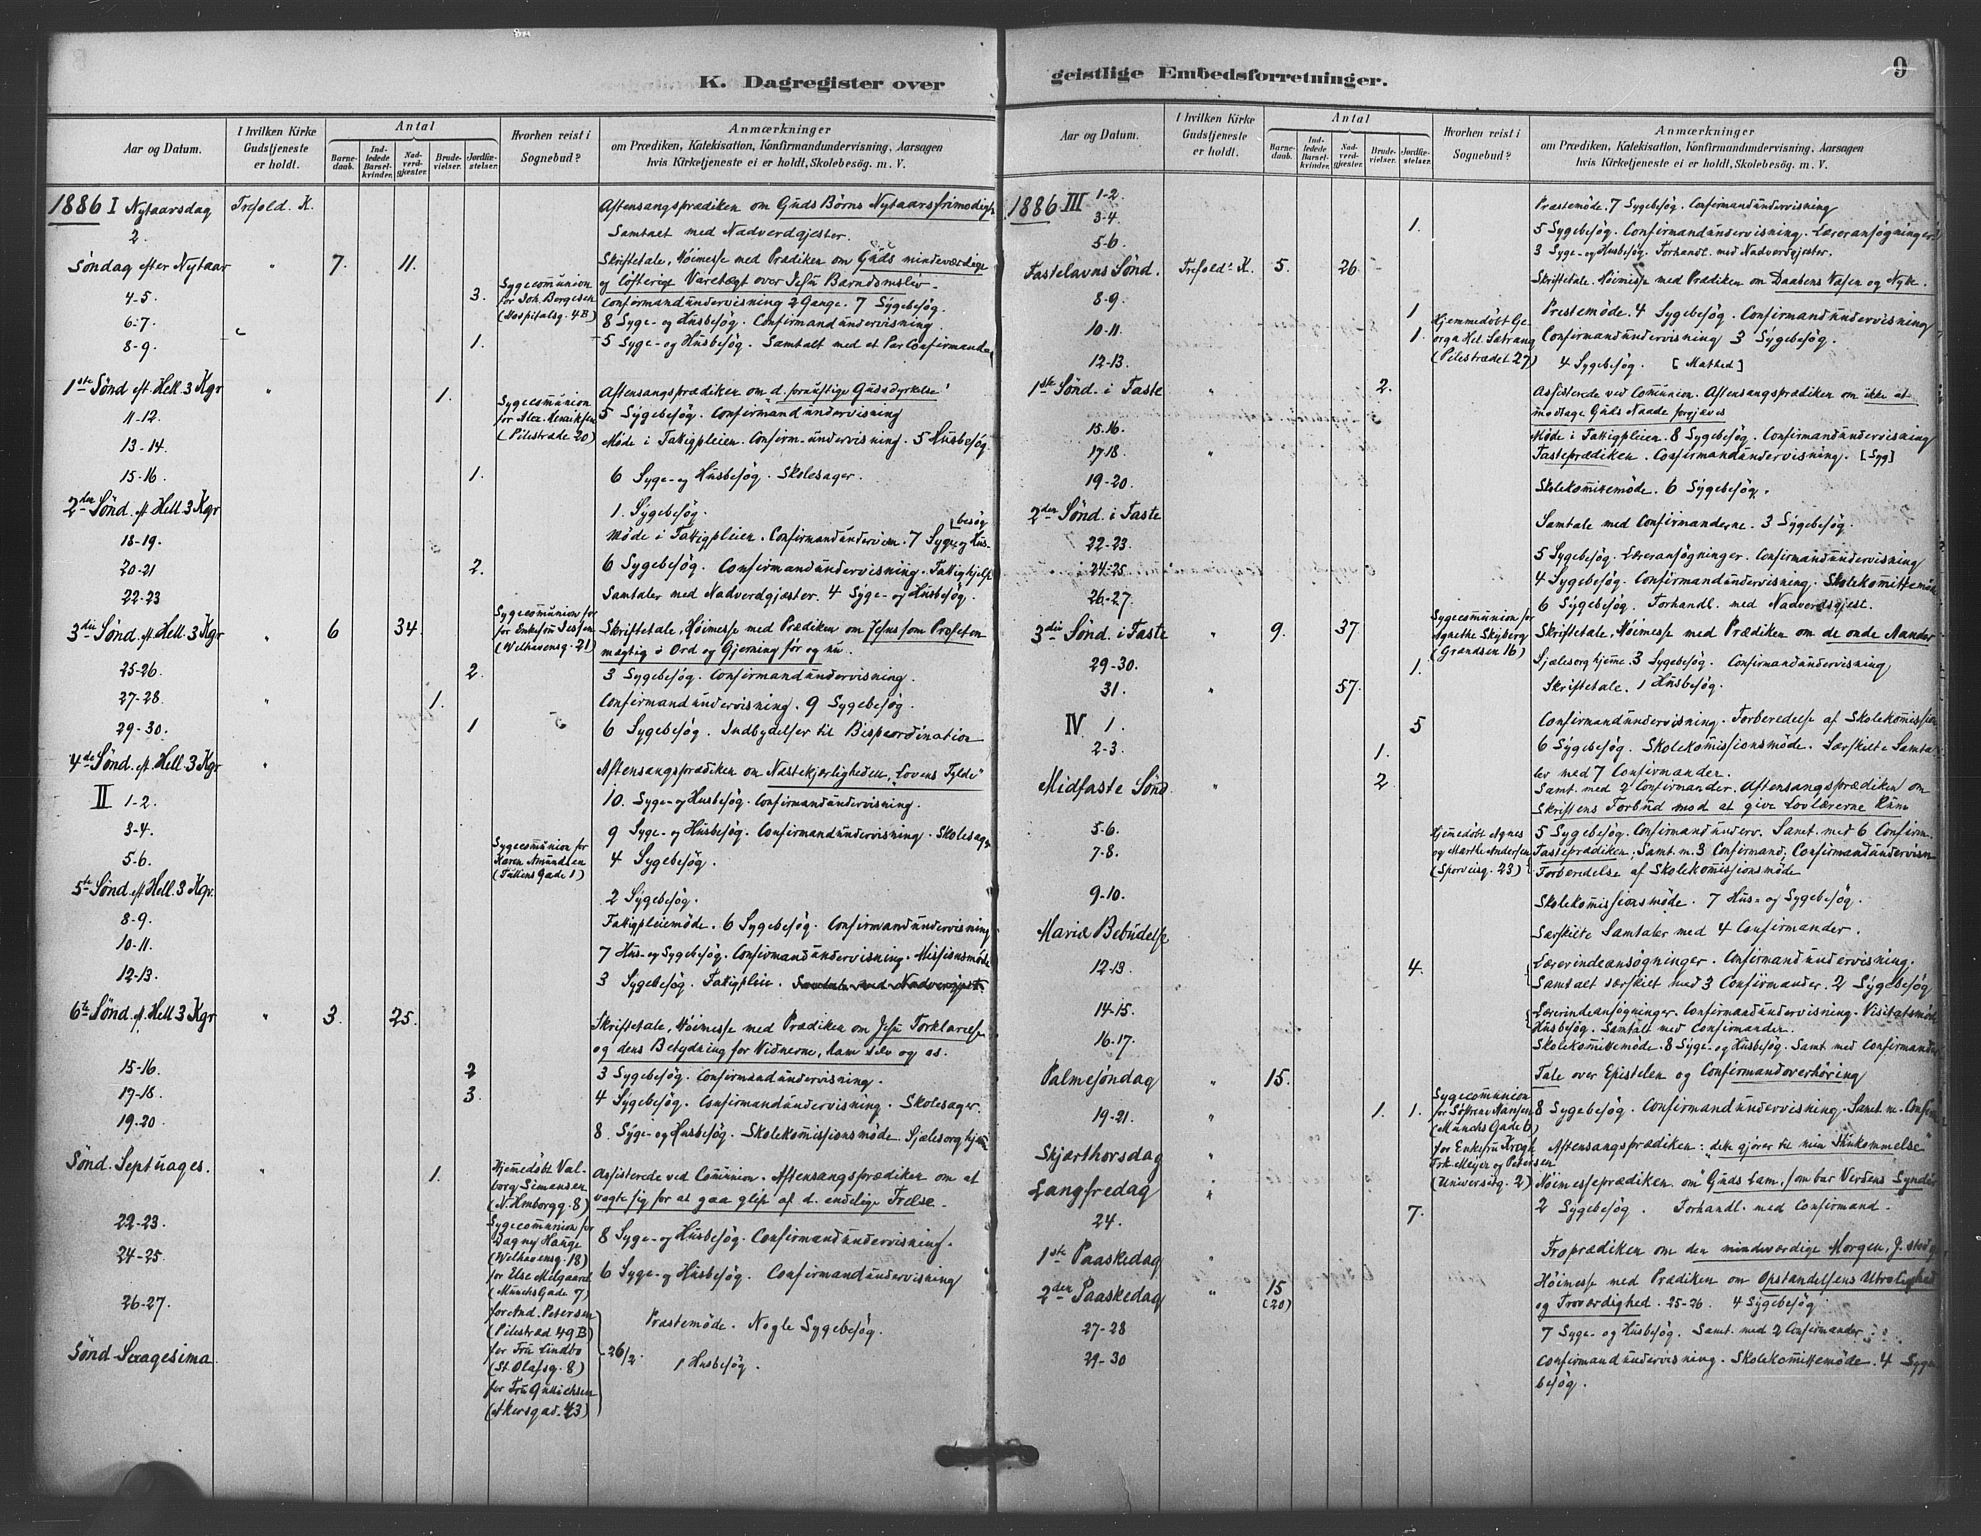 K. Dagregister over
Aar og Datum.
I hvilken Kirke Gudstjeneste er holdt.
Antal
Barnedaab.
Indledede Barselkvinder.
Nadverdgjester.
Brudevielser.
Jordfæstelser.
Hvorhen reist i Sognebud?
Anmærkninger
om Prædiken, Katekisation, Konfirmandundervisning, Aarsagen
hvis Kirketjeneste ei er holdt, Skolebesøg. m. V.
1886 I Nytaarsdag Trefold. K. Aftensangsprædiken om Guds Børns Nytaarsfrimodigh
2. Samtalt med Nadverdgjester.
Søndag efter Nytaar " 7. 11. Skriftetale, Høimesse med Prædiken om Guds mindeværdige
og løfterige Varetægt over Jesu Barndomsliv.
4-5. 3. Sygecommunion for Joh. Borgesen (Hospitalsg. 4B) Confirmandundervisning 2 Gange. 7 Sygebesøg.
6-7. 8 Syge- og Husbesøg. Confirmandundervisning.
8-9. 1. 5 Syge- og Husbesøg. Samtalt med et Par Confirmander
1ste Sønd. eft. Hell. 3 Kgr " 1. Aftensangsprædiken om d. fornuftige Gudsdyrkelse!
11-12. Sygecommunion for Alex. Henriksen (Pilestræde 20) 5 Sygebesøg. Confirmandundervisning
13-14. Møde i Fattigpleien. Confirm.undervisning. 5 Husbesøg
15-16. 1. 6 Syge- og Husbesøg. Skolesager.
2den Sønd. eft. Hell. 3 Kgr 1. Sygebesøg.
18-19. Møde i Fattigpleien. Confirmandundervisn. 7 Syge- og Husbesøg
20-21 2. 6 Sygebesøg. Confirmandundervisning. Fattighjelp
22-23 Samtaler med Nadverdgjester. 4 Syge- og Husbesøg.
3die Sønd. eft. Hell. 3 Kgr " 6 34. Sygecommunion for for Enkefru Jessen (Welhavensg. 21) Skriftetale, Høimesse med Prædiken om Jesus som Profeten
mægtig i Ord og Gjerning før og nu.
25-26. 2. 3 Sygebesøg. Confirmandundervisning.
27-28. " 1. Confirmandundervisning. 9 Sygebesøg.
29-30. 1 6 Sygebesøg. Indbydelser til Bispeordination
4de Sønd. eft. Hell 3 Kgr Aftensangsprædiken om Næstekjærligheden „Lovens Fylde"
II 1-2. 10. Syge- og Husbesøg. Confirmandundervisning.
3-4. 9 Syge- og Husbesøg. Confirmandundervisning. Skolesag.
5-6. Sygecommunion for Karen Amundsen (Tullins Gade 1) 4 Sygebesøg.
5te Sønd. eft. Hell. 3 Kgr. 2 Sygebesøg.
8-9. Fattigpleiemøde. 6 Sygebesøg. Confirmandundervisning
10-11. 7 Hus- og Sygebesøg. Confirmandundervisning. Missionsmøde
12-13. 3 Sygebesøg. Fattigpleie. Samtale med Nadvergjest.
6te Sønd. eft. Hell 3 Kgr " 3. 25. Skriftetale, Høimesse med Prædiken om Jesu Forklarelse
og dens Betydning for Vidnerne, ham selv og os.
15-16. 2 3 Sygebesøg. Confirmandundervisning.
17-18. 3. 4 Sygebesøg. Confirmandundervisning. Skolesager.
19-20 8. Syge- og Husbesøg. Skolekommissionsmøde
Sønd. Septuages. " 1. Hjemmedøbt Valborg Simensen Assisterede ved Communion. Aftensangsprædiken om at
vogte sig for at gaa glip af d. endelige Frelse.
22-23. Sygecommunion for Dagny Hauge (Welhavensg. 18) 8 Syge- og Husbesøg. Confirmandundervisning.
24-25. for Else Melgaard (Munchs Gade 7) 6 Syge- og Husbesøg. Confirmandundervisning
26-27. for And. Petersen (Pilestræd 49B) Præstemøde. Nogle Sygebesøg.
Sønd. Sexagesima. for Fru Lindbo (St. Olafsg. 8) 26/2. 1 Husbesøg.
for Fru Gulichsen (Akersgad. 43)
geistlige Embedsforretninger.
9
Aar og Datum.
I hvilken Kirke Gudstjeneste er holdt.
Antal
Barnedaab.
Indledede Barselkvinder.
Nadverdgjester.
Brudevielser.
Jordfæstelser.
Hvorhen reist i Sognebud?
Anmærkninger
om Prædiken, Katekisation, Konfirmandundervisning, Aarsagen
hvis Kirketjeneste ei er holdt, Skolebesøg. m. V.
1886 III 1-2 Præstemøde. 7 Sygebesøg. Confirmandundervisning
3-4 1. 5 Sygebesøg. Confirmandundervisning. Læreransøgninger
5-6. 3 Syge- og Husbesøg. Forhandl. med Nadverdgjester.
Fastelavns Sønd. Trefold. K. 5. 26 Skriftetale. Høimesse med Prædiken om Daabens Væsen og Nytte.
8-9. 1 Præstemøde. 4 Sygebesøg. Confirmandundervisning
10-11. 1. Hjemmedøbt (Pilestrædet 27) Confirmandundervisning 3 Sygebesøg.
12-13. 4 Sygebesøg. [Mathed]
1ste Sønd. i Faste " 2. Assisterede ved Communion. Aftensangsprædiken om ikke at
modtage Guds Naade forgjæves
15-16. Møde i Fattigpleien. 8 Sygebesøg. Confirmandundervisning
17-18. " Fasteprædiken. Confirmandundervisning. [Syg]
19-20. Skolekommitemøde. 6 Sygebesøg.
2den Sønd. i Faste Samtale med Confirmanderne. 3 Sygebesøg.
22-23. 5 Sygebesøg. Læreransøgninger. Confirmandundervisning
24-25 4 Sygebesøg. Confirmandundervisning. Skolekommittemøde
26-27. 6 Sygebesøg. Forhandl. med Nadverdsgjest.
3die Sønd. i Faste " 9. 37 Sygecommunion for Agnethe Skyberg (Grændsen 16) Skriftetale, Høimesse med Prædiken om de onde Aander
29-30. 1. Sjælesorg hjemme. 3 Sygebesøg. Confirmandundervisning
31. " 57. Skriftetale. 1 Husbesøg.
IV 1. 5 Confirmandundervisning. Forberedelse af Skolekommission
2-3. 1. 6 Sygebesøg. Skolekommissionsmøde. Særskilte Samta
ler med 7 Confirmander.
Midfaste Sønd " 2 Samt. med 2 Confirmander. Aftensangsprædiken om
Skriftens Forbud mod at give Lovlærerne Rum
5-6. Hjemedøbt Agnes og Marthe Andersen (Sporveisg. 23) 5 Sygebesøg. Confirmandunderv. Samt. med 6 Confirm.
7-8. Fasteprædiken. Samt. m. 3 Confirmand. Confirmandundervisn
Forberedelse af Skolekommissionsmøde
9-10. Skolekommissionsmøde. 7 Hus- og Sygebesøg.
Mariæ Bebudelse Særskilte Samtaler med 4 Confirmander.
12-13. 4. Lærerindeansøgninger. Confirmandundervisning.
Samtalt særskilt med 3 Confirmander. 2 Sygebesøg
14-15. Lærerindeansøgninger. Confirmandundervisning. Visitatsmøde
Husbesøg. Samtale med Confirmander.
16-17. Skolekommittemøde. 8 Syge- og Husbesøg. Samt med Confirmander
Palmesøndag " 15. Tale over Epistelen og Confirmandoverhøring
19-21. " 1. 1. Sygecommunion for Søfrene Hansen (Munchs Gade 6) 8 Sygebesøg. Confirmandundervisning. Samt. m. Confirm
Skjærthorsdag " for Enkefru Krogh Frk. Meyer og Petersen (Universitg. 2) Aftensangsprædiken: „dette gjører til min Ihukommelse"
Langfredag " Høimesseprædiken om Guds Lam, som bar Verdens Synder
24. 7. 2 Sygebesøg. Forhandl. med Confirmand.
1ste Paaskedag " Froprædiken om den mindeværdige Morgen, J. stod op
2den Paaskedag " 15 (20) Høimesse med Prædiken om Opstandelsens Utrolighed
og Troværdighed. 25-26. 4 Sygebesøg
27-28 7 Syge- og Husbesøg. Samt. med 2 Confirmander
29-30 Confirmandundervisning. Skolekommittemøde. 4 Syge
besøg.